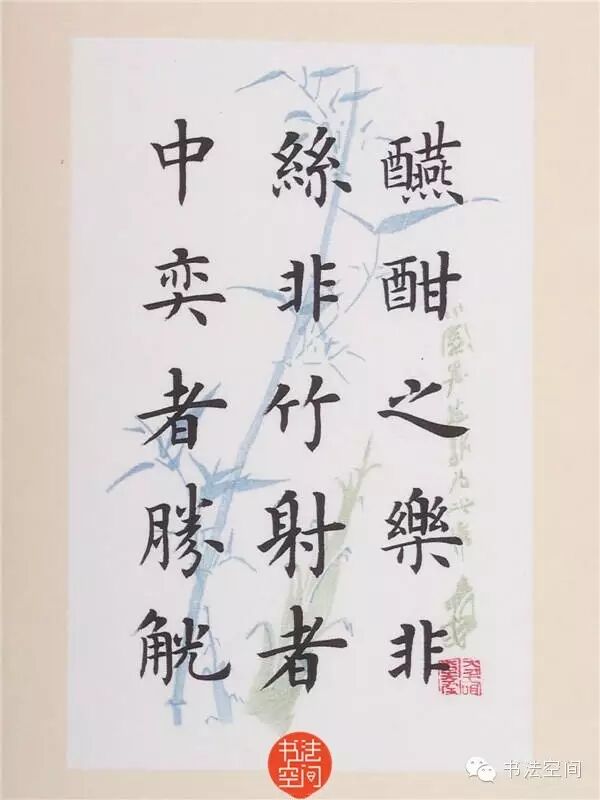 醼酣之樂非
絲非竹射者
中奕者勝觥
书法空间
书法空间